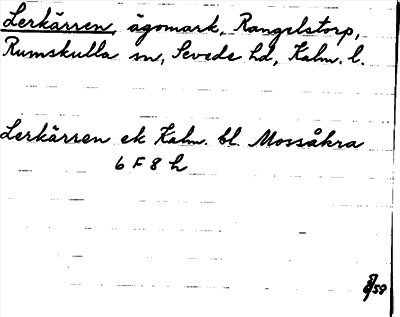 Lerkärren, ägomark, Rangelstorp,
Rumskulla sn, Sevede hd, Kalm. l.
Lerkärren ek Kalm. bl. Mossåkra
6 F 8 h